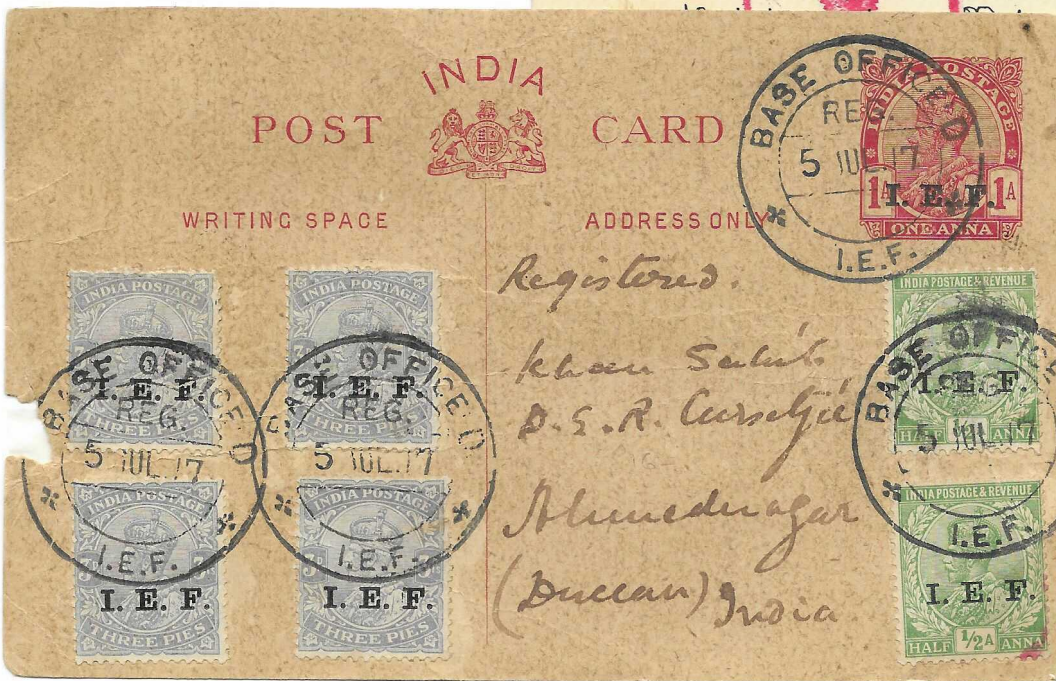 INDIA
POST CARD
WRITING SPACE
ADDRESS ONLY
INDIA POSTAGE
1A 1A
I. E. F.
ONE ANNA
BASE OFFICE D
REG.
5 JUL.17
I.E.F.
Registered.
Khan Sahib
D.S.R. Cursetjie
Ahmednagar
(Deccan) India
INDIA POSTAGE
I. E. F.
THREE PIES
INDIA POSTAGE
I. E. F.
THREE PIES
BASE OFFICE D
REG.
5 JUL.17
I.E.F.
BASE OFFICE D
REG.
5 JUL.17
I.E.F.
INDIA POSTAGE
I. E. F.
THREE PIES
INDIA POSTAGE
I. E. F.
THREE PIES
INDIA POSTAGE & REVENUE
I. E. F.
HALF ANNA
BASE OFFICE
REG
5 JUL.17
I.E.F.
INDIA POSTAGE & REVENUE
I. E. F.
HALF 1/2A ANNA